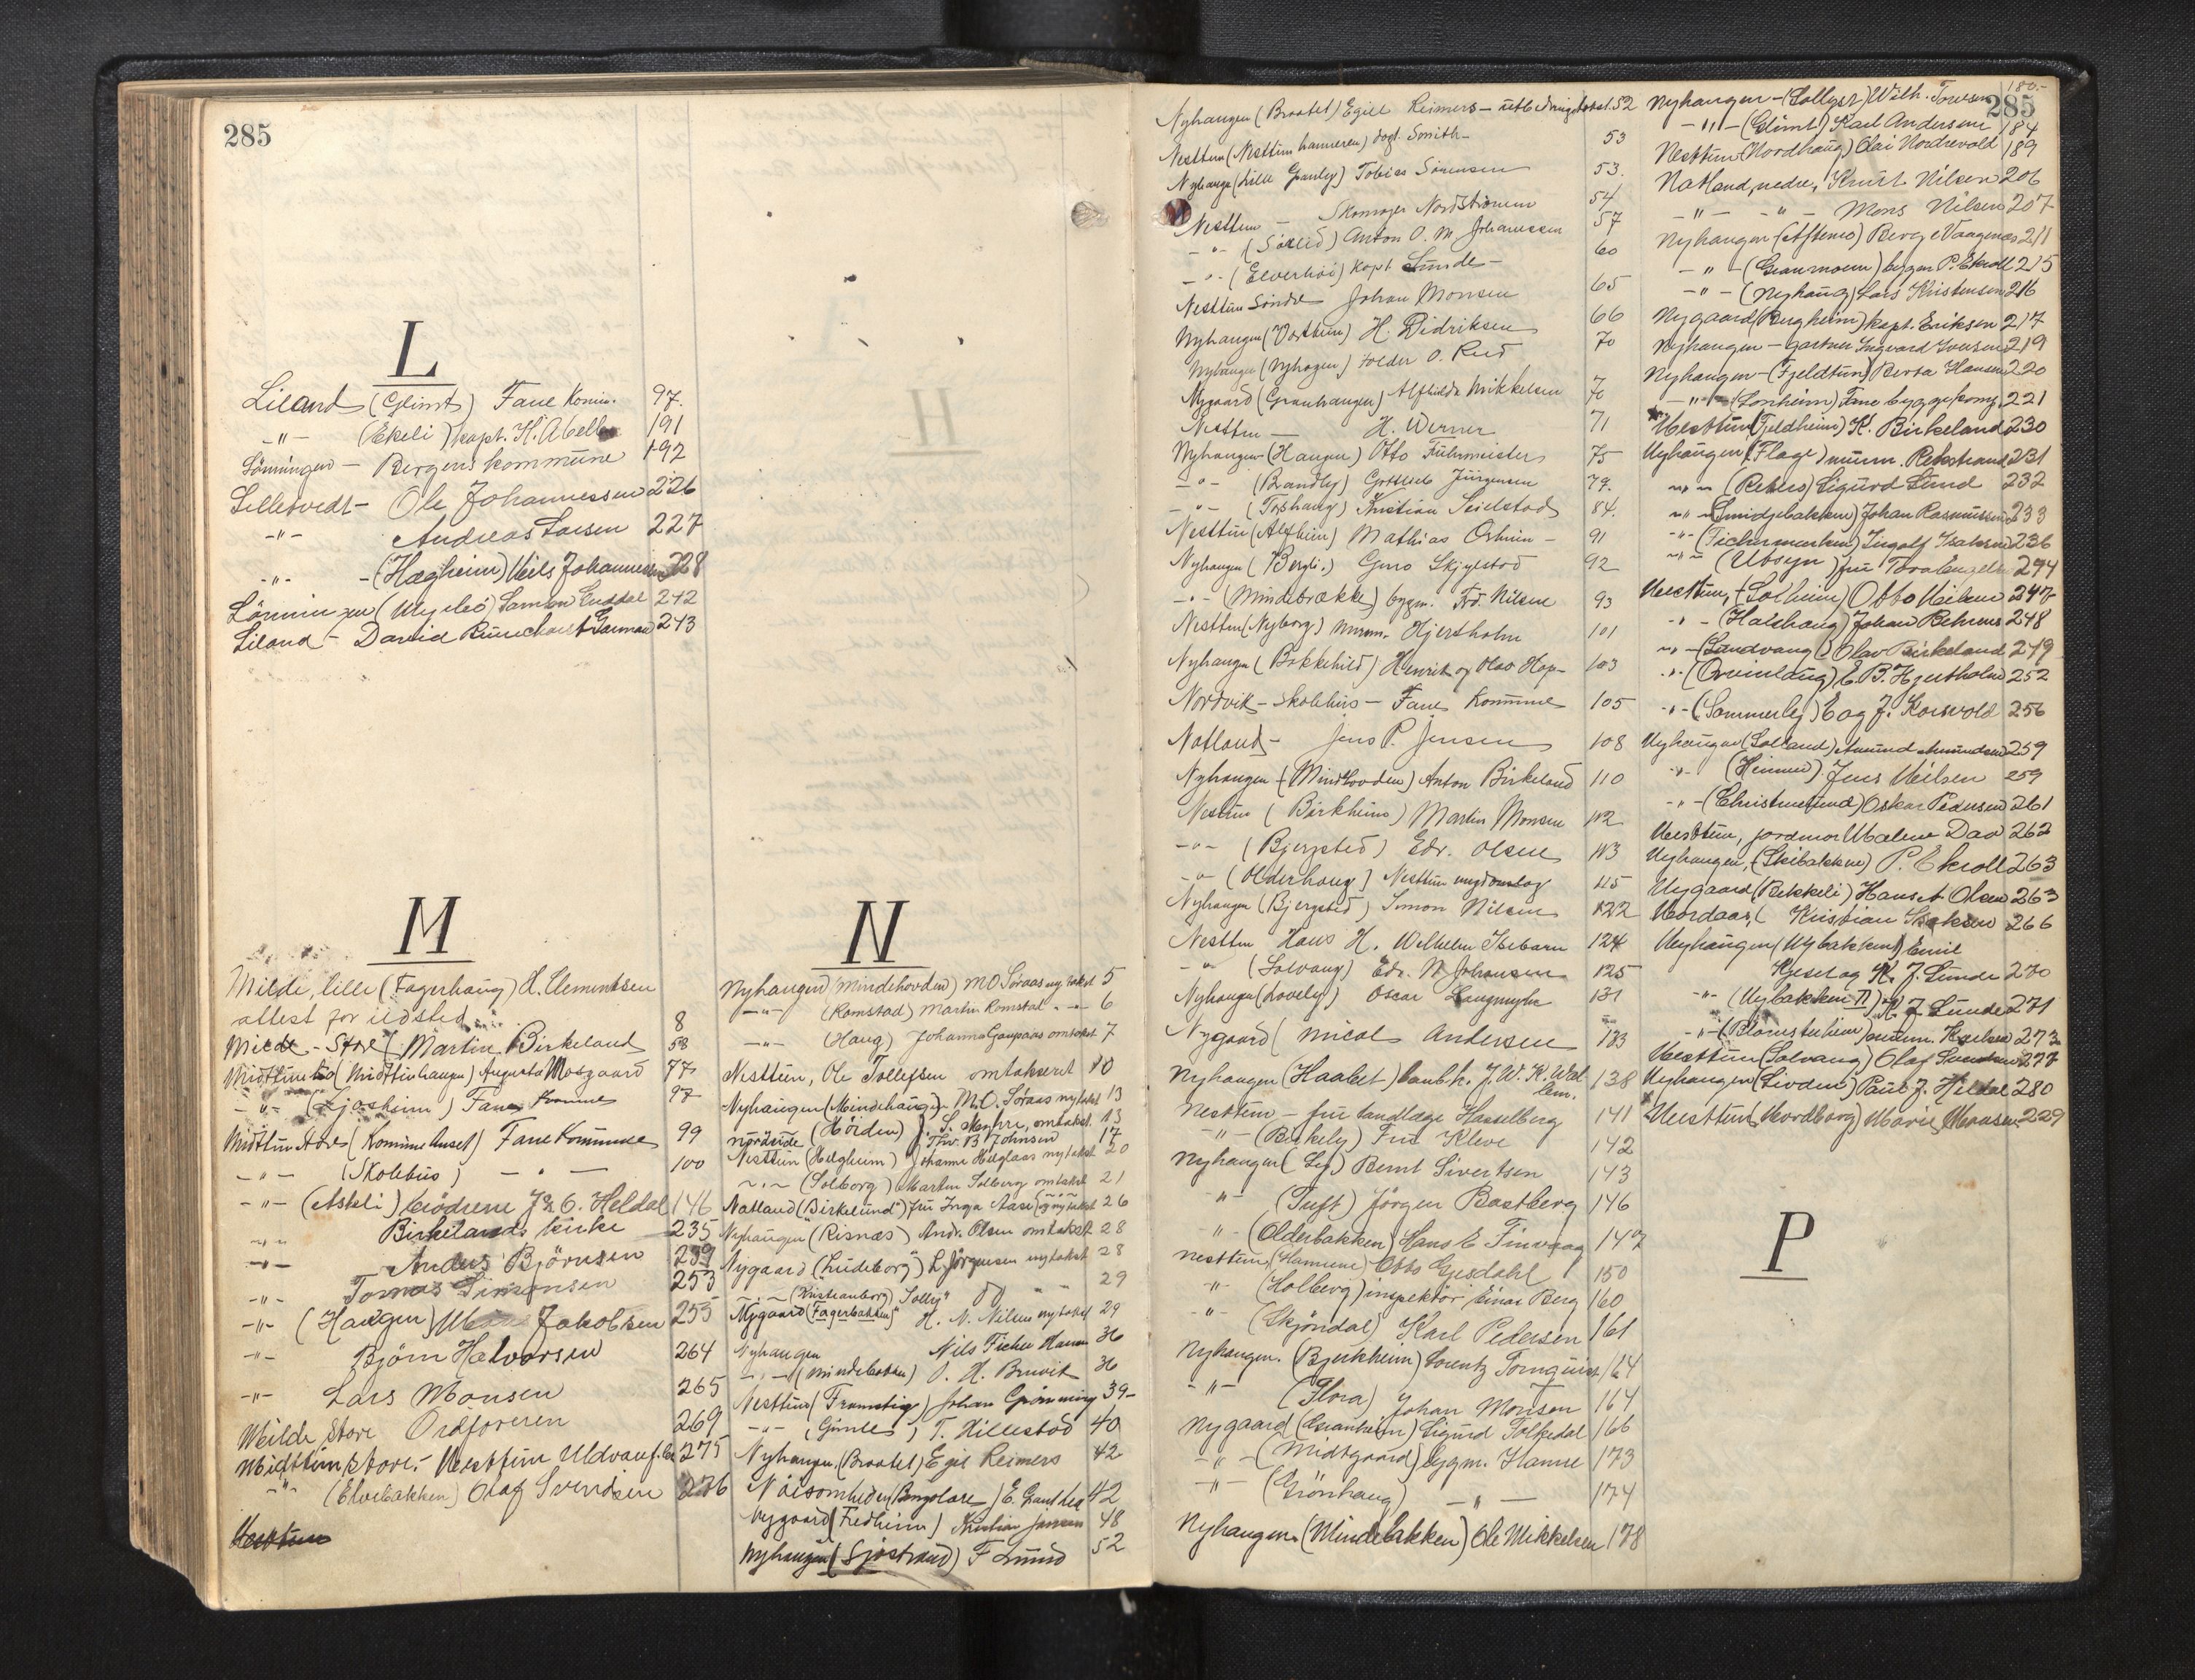 285
L
Liland (Glimt) Fane Komm. 97.
-"- (Ekeli) kapt. K. Abell 191
Lönningen - Bergens kommune 192
Lilletvedt - Ole Johannessen 226
-"- Andreas Larsen 227
-"- (Hægheim) Nils Johannessen 228
Lönningen 242
Liland - David 243
M
Milde, lille (Fagerhaug) H. Clementsen
attest for ildsted 8
Milde - Store (Martin Birkeland 58
Midttun (Midttunhaugen) Augusta Mosgaard 77
-"- Fane Komme 97
Midttun store (Kommunehuset) Fane Kommune 99
-"- (Skolehus) - " - 100
-"- (Askeli) brödrene J & O. Heldal 146
-"- Birkelands kirke 235
-"- Anders Björnsen 239
-"- Tomas Simonsen 253
-"- (Haugen) Jakobsen 255
-"- Björn Halvorsen 264
-"- Lars Monsen 265
Milde store Ordföreren 269
Midttun, store, Nesttun 275
-"- (Elvebakken) Olaf Svendsen 276
Nesttun
N
Nyhaugen (Mindehovden) M.O. Söraas ny takst 5
-"- (Romstad) Martin Romstad -"- 6
-"- (Haug) Johanna Gaupaas omtakst 7
Nesttun, Ole Tollefsen omtakseret 10
Nyhaugen (Mindehaugen) M.O. Söraas nytakst 13
nordside (Höiden) omtakst. 13
Thv. B. Johnsen 17
Nesttun (Helgheim) Johanne Helglaas nytakst 20
-"- (Solborg) Martin Solberg omtakst 21
Natland ("Birkelund") fru Inga Aase nytakst 26
Nyhaugen (Risnæs) Andr. Olsen omtakst 28
Nygaard (Ludeborg) L. Jörgensen nytakst 28
-"- (Kristianborg) 29
Nygaard ("Fagerbakken") H. N. Nilsen nytakst 29
Nyhaugen Nils Ficher Hansen 36
-"- (Mindebakken) O. H. Bruvik 36
Nesttun (Framstig) Johan Grönning 39-
-"- (Gimle) T. Hillestad 40
Nyhaugen (Braatet) Egil Reimers 42
Nöisomheden E. 42
Nygaard (Fredheim) Kristian Jansen 48
Nyhaugen (Sjöstrand) F Lund 52
285
Nyhaugen (Braatet) Egill Reimers - utb. 52
Nesttun (Nesttunhammeren) dogt. Smith - 53
Nyhaugen (Lille Granly) Tobias Sörensen 53.
Nesttun - Skomager Nordström 54
-"- (Sörlid) Anton O. M. Johannessen 57
-"- (Elverhöi) Kapt Lunde - 60
Nesttun Söndre Johan Monsen 65
Nyhaugen (Vortun) H. Didriksen 66
Nyhaugen (Nyhagen) tolder O. Rud 70
Nygaard (Granhaugen) Alfhilde Mikkelsen 70
Nesttun - H. Werner 71
Nyhaugen (Haugen) Otto Führmeister 75
-"- (Brandly) Gottlieb Jürgensen 79.
-"- (Torshaug) Kristian Seielstad 84.
Nesttun (Alfheim) Mathias Oshun - 91
Nyhaugen (Bergli.) Guro Skjelstad 92
-"- (Mindebrække) bygm. Frd. Nilsen 93
Nesttun (Nyborg) murm. Hjertholm 101
Nyhaugen (Bakkehild) Henrik og Olav Hop- 103
Nordvik - Skolehus - Fane Kommune 105
Natland - Jens P. Jensen 108
Nyhaugen (Mindehovden) Anton Birkeland 110
Nesttun (Birkheim) Martin Monsen 112
-"- (Bjergsted) Edv. Olsen 113
-"- (Olderhaug) Nesttun ungdomslag 115
Nyhaugen (Bjergsted) Simon Nilsen 122
Nesttun Hans H. Wilhelm Isebarn 124
-"- (Solvang) Edv. N. Johansen 125
Nyhaugen (Lovely) Oscar Langmyhr 131
Nygaard (Nicol Andersen 133
Nyhaugen (Haabet) banbk. J. W. K. Wal-
lem. 138
Nesttun - fru landlæge Hasselberg 141
-"- (Birkely) Fru Kleve 142
Nyhaugen (Ly) Bernt Sivertsen 143
-"- (Tuft) Jörgen Bastberg 146
-"- (Olderbakken) Hans E Finvaag 147
Nesttun, (Hamrene) Otto Gjesdahl 150
-"- (Solberg) inspektör Einar Berg 160
-"- (Skjöndal) Karl Pedersen 161
Nyhaugen. (Bjerkheim) Lorentz Tornquist 164
-"- (Flora) Johan Monsen 164
Nygaard (Granheim) Sigurd Folkedal 166
-"- (Midtgaard) bygm. Hanse 173
-"- (Grönhaug) -"- 174
Nyhaugen (Mindebakken) Ole Mikkelsen 178
Nyhaugen - (Sollyst) Wilh. 180.-
-"- (Glimt) Karl Andersen 184
Nesttun (Nordhaug) Olai Nordrevold 189
Natland, nedre, Knut Nilsen 206
-"- -"- Mons Nilsen 207
Nyhaugen (Aftenro) Berge Vaagenæs 211
-"- (Granmoen) bygm P. Ekroll 215
-"- (Nyhaug) Lars Kristensen 216
Nygaard (Bergheim) kapt. Eriksen 217
Nyhaugen - gartner Ingvard Iversen 219
Nyhaugen - (Fjeldtun) Berta Hansen 220
-"- (Lonheim) Fane byggekomp. 221
Nesttun (Fjeldheim) K. Birkeland 230
Nyhaugen (Flage) murm. Rekstrand 231
-"- (Rekers) Sigurd Lund 232
-"- (Smidjebakken) Johan Rasmussen 233
-"- (Fichermarken) Ingolf Isaksen 236
-"- (Utsyn) fru Tora Engels 244
Nesttun, (Solheim) Otto Nilsen 247
-"- (Halshaug) Johan Behrens 248
-"- (Landvang) Olav Birkeland 249
-"- E. B. Hjertholm 252
-"- (Sommerly) E og J. Korsvold 256
Nyhaugen (Solland) Amund Amundsen 259
-"- (Heimen) Jens Nilsen 259
-"- (Christinelund) Oskar Pedersen 261
Nesttun, jordmor Malene Daa 262
Nyhaugen, (Skibakken) P. Ekroll 263
Nygaard (Bekkeli) Hans Olsen 263
Nordaas, (Kristian Isaksen 266
Nyhaugen (Nybakken I) Emil
Kjeset og K. J. Lunde 270
-"- (Nybakken II) K. J. Lunde 271
-"- (Blomsterheim) 273
Nesttun (Solvang) Olaf Svendsen 277
Nyhaugen (Livden) Paul J. Hjeldal 280
Nesttun (Nordborg) Marie Monsen 229
P